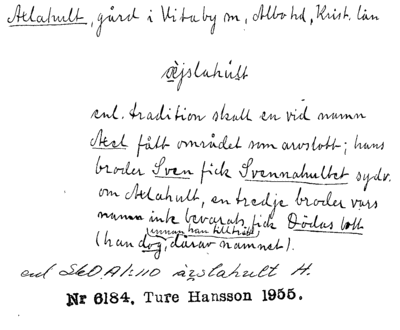 Axlahult, gård i Vitaby sn, Albo hd, Krist. län
æjslahúlt
enl. tradition skall en vid namn
Axel fått området som arvslott; hans
broder Sven fick Svennahultet sydv.
om Axlahult, en tredje broder vars
namn ink bevarats, fick Dödas lott
innan han tillträtt
(han dog, därav namnet).
enl SkO. A1:110 H.
Nr 6184. Ture Hansson 1955.